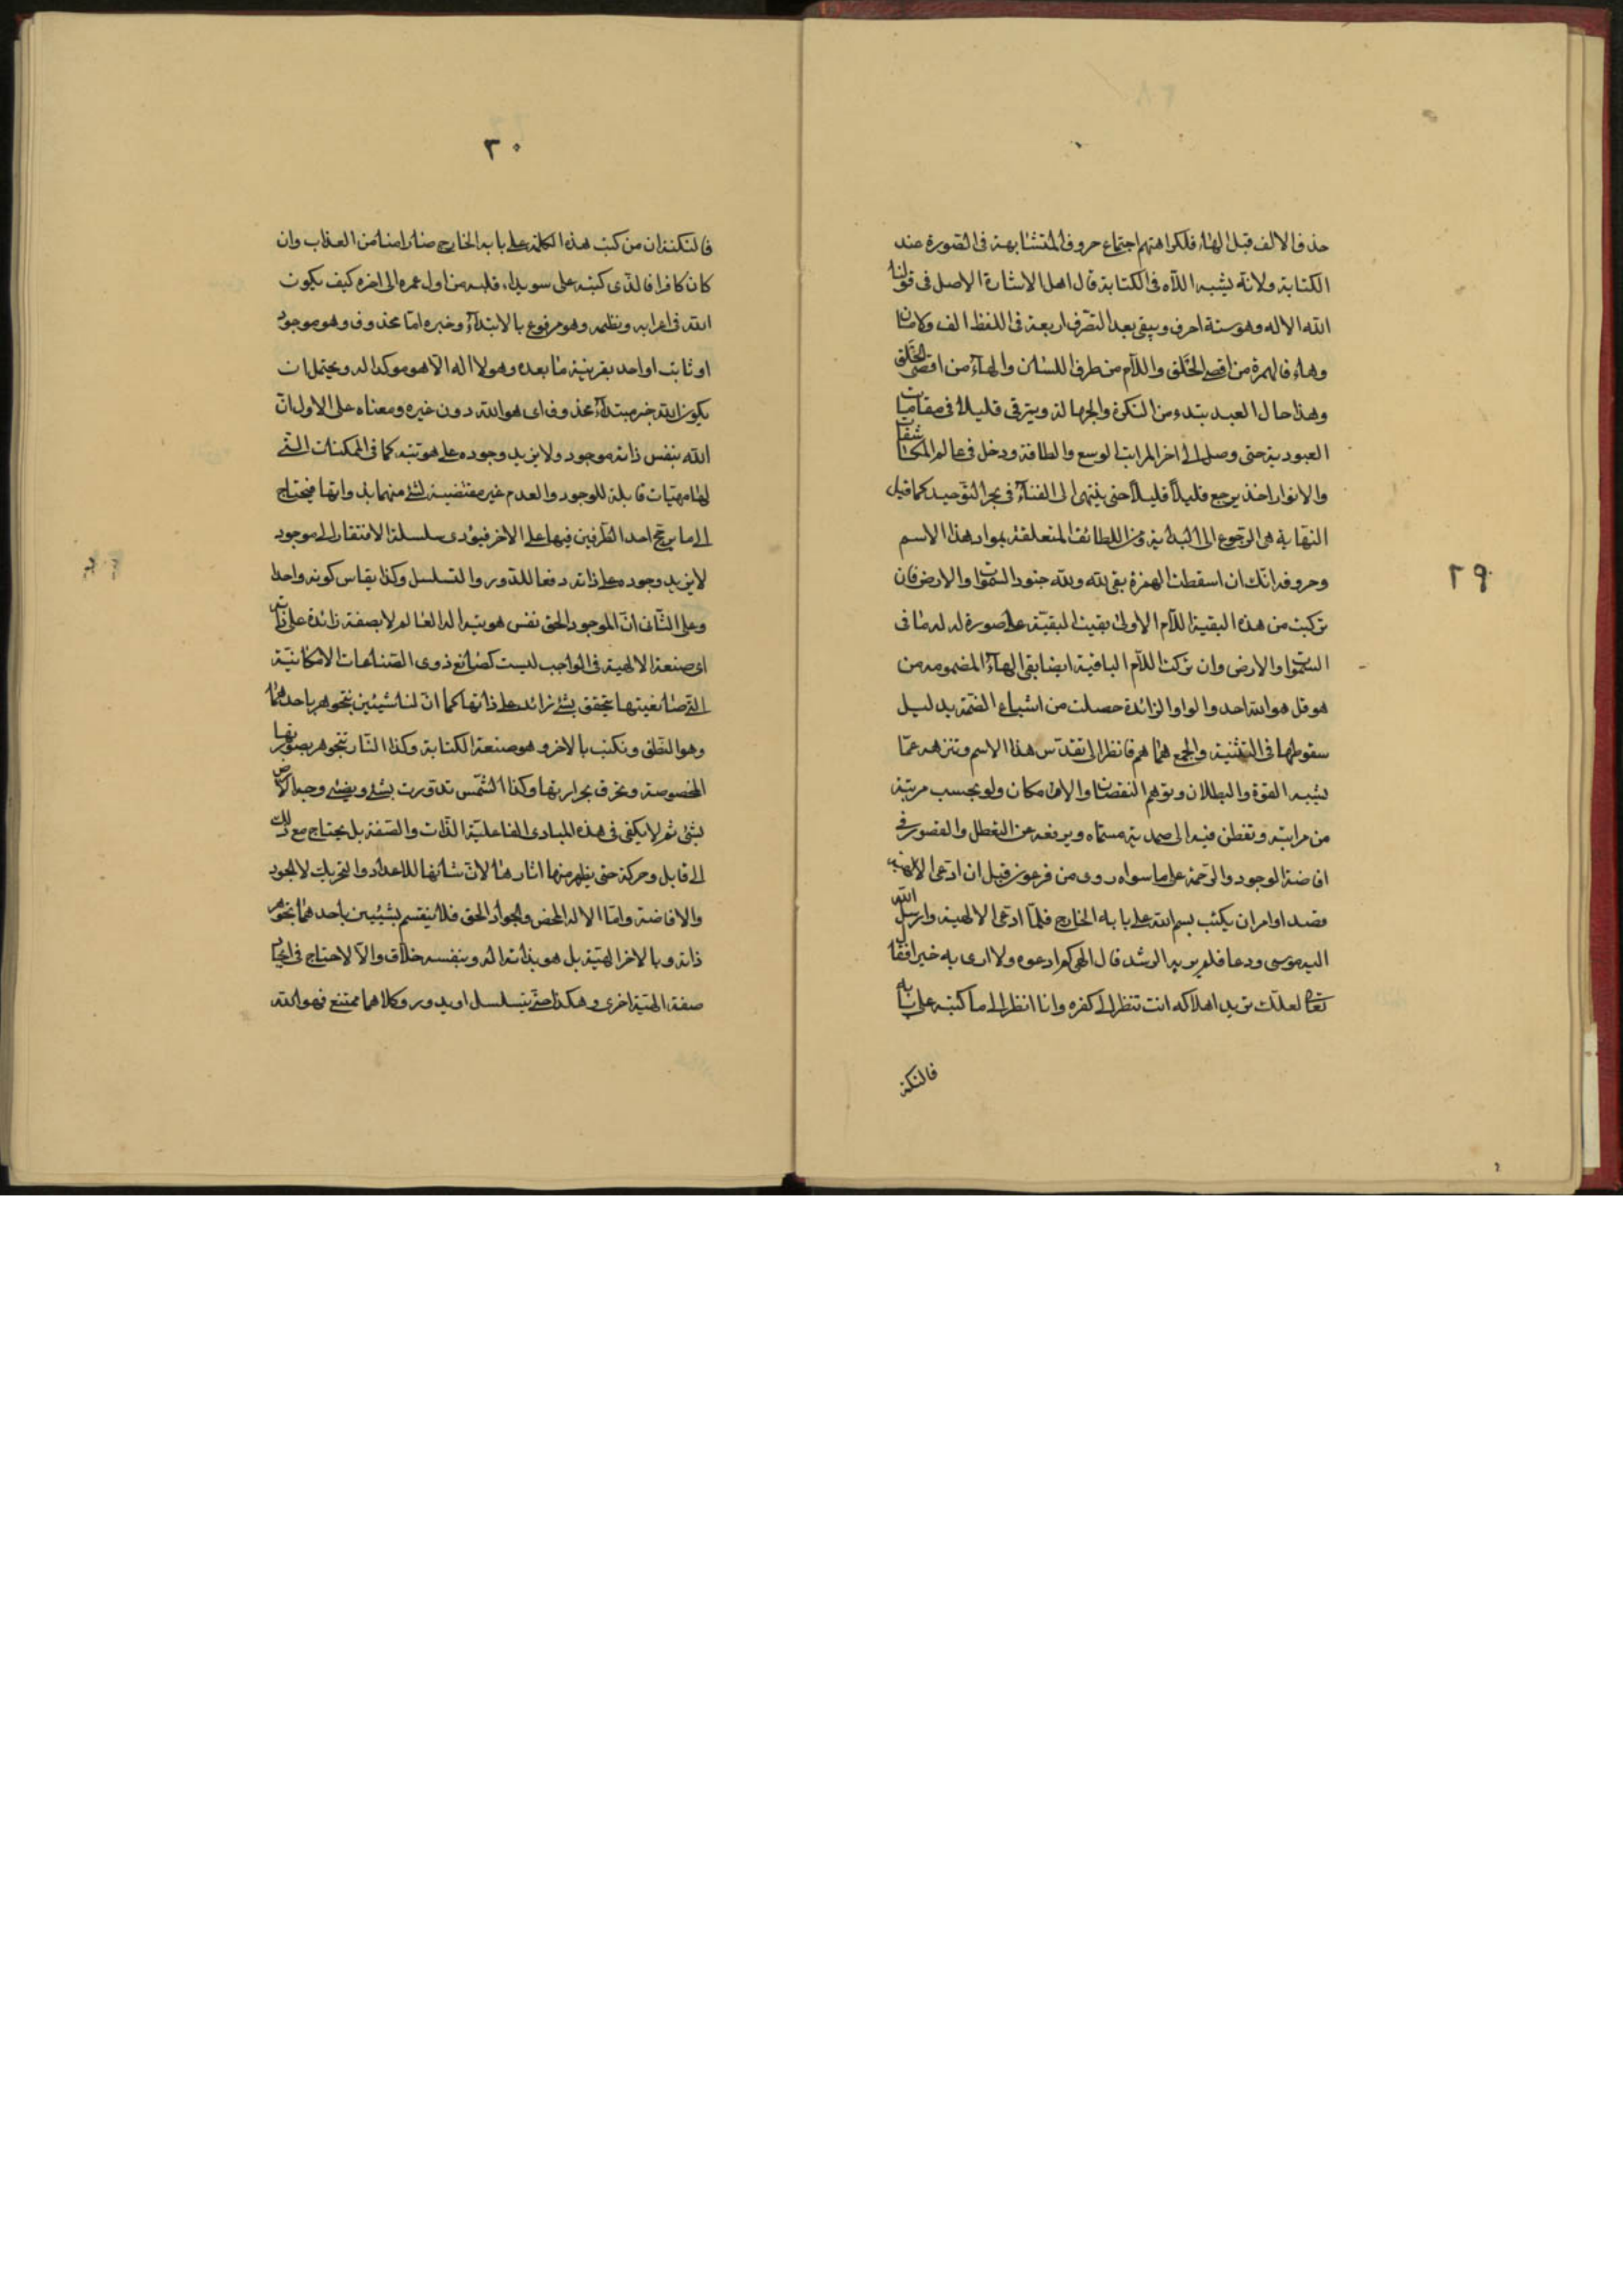 ٢٩
حذف الالف قبل الهاء فلكراهتهم اجتماع حروف المتشابهة فى الصورة عند
الكتابة ولانه يشبه اللاه فى الكتابة قال اهل الاشارة الاصل فى قولنا
الله الاله وهو ستة احرف ويبقى بعد التصرف اربعة فى اللفظ الف ولامان
وهاء فالهمزة من اقصى الحلق واللام من طرف اللسان والهاء من اقصى الحلق
وهذا حال العبد يبتدء من النكرة والجهالة ويترقى قليلا فى مقامات
العبودية حتى وصل الى اخر المراتب الوسع والطاقة ودخل فى عالم المكاشفات
والانوار اخذ يرجع قليلاً قليلاً حتى ينتهى الى الفناء فى بحر التوحيد كما قيل
النهاية هى الرجوع الى البداية ومن اللطائف المتعلقة بمواد هذا الاسم
وحروفه انك ان اسقطت الهمزة بقى لله ولله جنود السموات والارض فان
تركت من هذه البقية اللام الاولى بقيت البقية على صورة له له ما فى
السموات والارض وان تركت اللام الباقية ايضا بقى الهاء المضمومه من
هو قل هو الله احد والواو الزائدة حصلت من اشباع الضمة بدليل
سقوطها فى التثنية والجمع هما هم فانظر الى تقدس هذا الاسم وتنزهه عما
يشبه القوة والبطلان وتوهم النقصان والامكان ولو بحسب مرتبة
من مراتبه وتفطن منه الى صمدية مسماه وبرفعه عن التعطل والقصور فى
افاضة الوجود والرحمة على ما سواه روى من فرعون قبل ان ادعى الالهية
قصد اوامر ان يكتب بسم الله على بابه الخارج فلما ادعى الالهية وارسل الله
اليه موسى ودعا فلم ير به الرشد قال الهى كم ادعوه ولا ارى به خيرا فقال
تعالى لعلك تريد اهلاكه انت تنظر الى كفره وانا انظر الى ما كتبه على بابه
فالنكتة
٣٠
فالنكتة ان من كتب هذه الكلمة على بابه الخارج صار امنا من العذاب وان
كان كافرا فالذى كتبه على سويداء قلبه من اول عمره الى اخره كيف يكون
الله فى اعرابه ونظمه وهو مرفوع بالابتداء وخبره اما محذوف وهو موجود
او ثابت او احد بقرينة ما بعده وهو لا اله الا هو موكدا له ويحتمل ان
يكون الله خبر مبتداء محذوف اى هو الله دون غيره ومعناه على الاول ان
الله بنفس ذاته موجود ولا يزيد وجوده على هويته كما فى الممكنات التى
لها مهيات قابلة للوجود والعدم غير مقتضية لشئ منهما بذواتها فيحتاج
الى ما يرجح احد الطرفين فيها على الاخر فيؤدى سلسلة الافتقار الى موجود
لا يزيد وجوده على ذاته دفعا للدور والتسلسل وكذا يقاس كونه واحدا
وعلى الثانى ان الموجود الحق نفس هويته اله العالم لا بصفة زائدة على ذاته
اى صنعة الالهية فى الواجب ليست كصنايع ذوى الصناعات الامكانية
التى صانعيتها بتحقق بشئ زائد على ذاتها كما ان لنا شيئين يتجوهر باحدهما
وهو النطق ونكتب بالاخر وهو صنعة الكتابة وكذا النار تتجوهر بصورتها
المخصوصة وتحرق بحرارتها وكذا الشمس تذوّرت بشئ ويضئ وجه الارض
بشئ ثم لا يكفى فى هذه المبادى الفاعلية الذات والصفة بل يحتاج مع ذلك
الى قابل وحركة حتى يظهر منها اثارها لان شانها الاعداد والتحريك لا الجود
والافاضة واما الاله المحض والجواد الحق فلا ينقسم بشيئين باحدهما تجوهر
ذاته وبالاخر الهيته بل هو بذاته اله وبنفسه خلاق والا لاحتاج فى ايجاد
صفة الهية اخرى وهكذا حتى يتسلسل او يدور وكلاهما ممتنع فهو الله